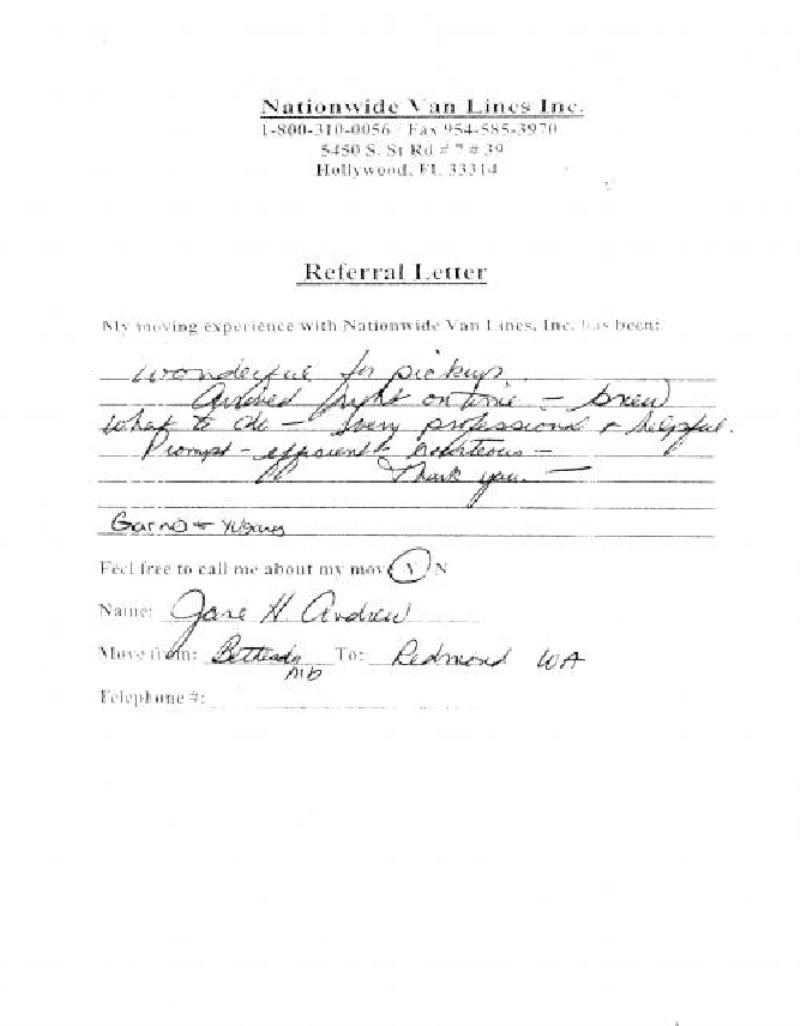 Nationwide Van Lines Inc.
1-800-310-0056 / Fax 954-585-3970
5450 S. St Rd # 7 # 39
Hollywood, FL 33314
Referral Letter
My moving experience with Nationwide Van Lines, Inc. has been:
wonderful for pickup
Arrived right on time - knew
what to do - very professional + helpful.
Prompt - efficient & courteous -
Thank you. -
Feel free to call me about my move Y N
Name: Jane H. Andrew
Move from: Bethesda To: Redmond WA
MD
Telephone #: